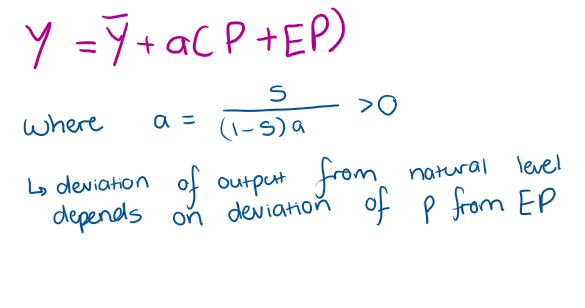 Y = Ȳ + a(P + EP)
where a = s / (1-s)a >0
↳ deviation of output from natural level
depends on deviation of P from EP